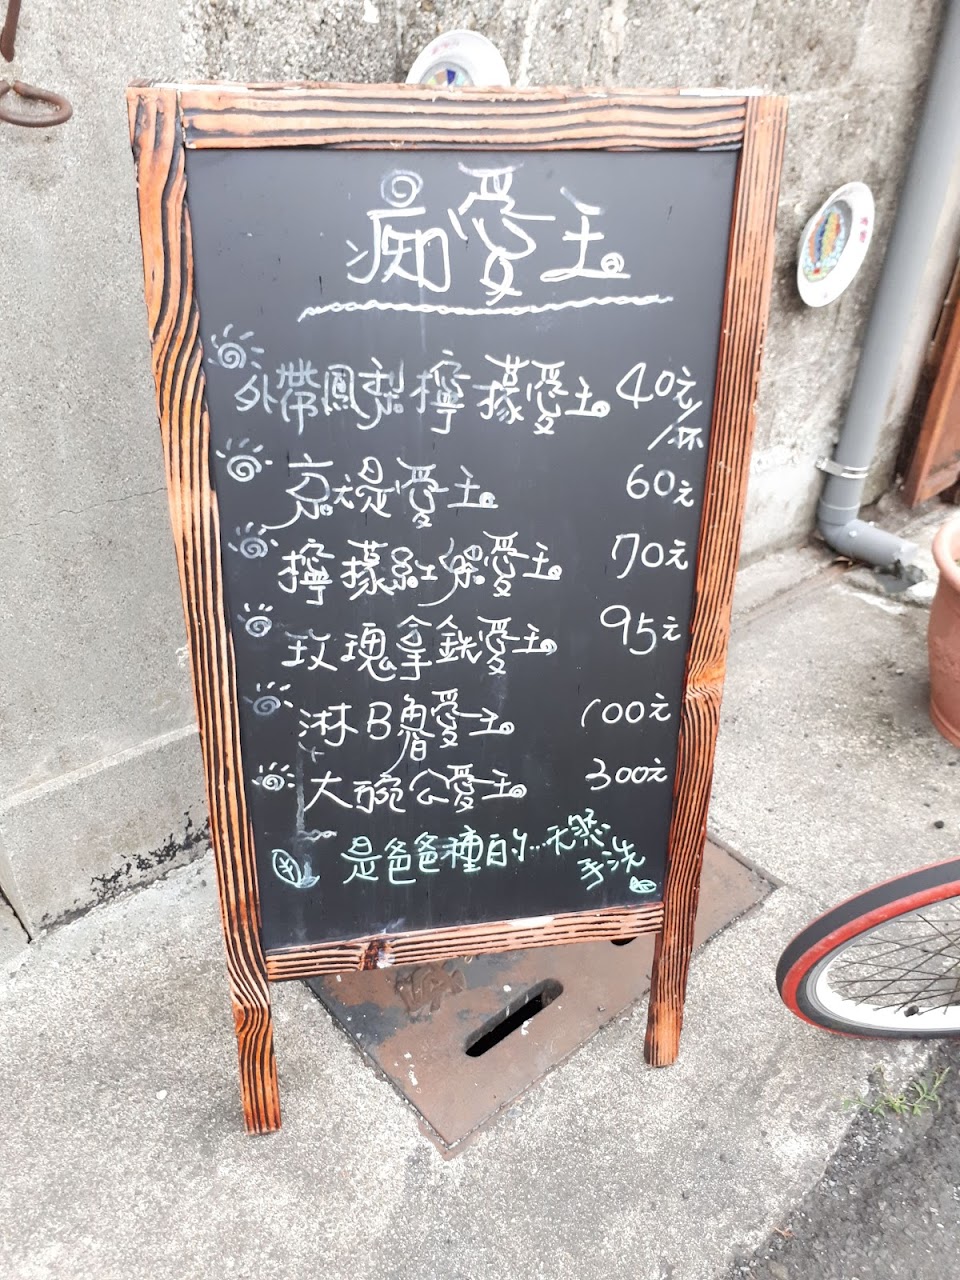 痴愛玉
外帶鳳梨檸檬愛玉 40元/杯
京禔愛玉 60元
檸檬紅柴愛玉 70元
玫瑰拿鐵愛玉 95元
淋B魯愛玉 100元
大碗公愛玉 300元
是爸爸種的...天然
手洗